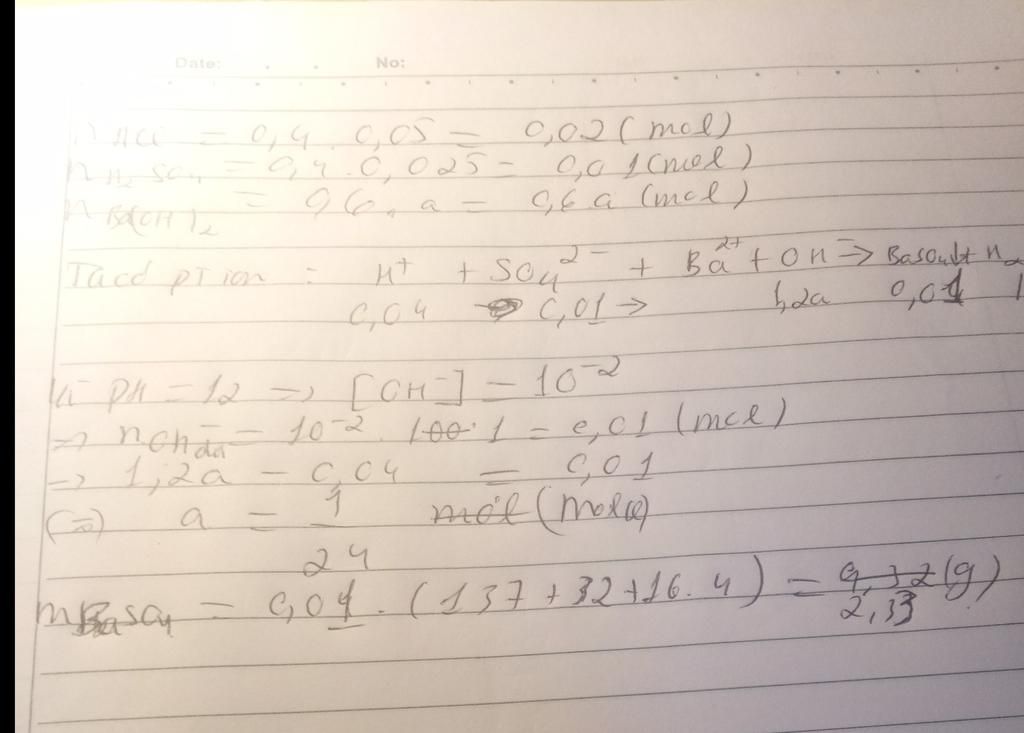 Date: No:
HCl = 0,4 . 0,05 = 0,02 (mol)
n H2SO4 = 0,4 . 0,025 = 0,01 (mol)
n Ba(OH)2 = 0,6 . a = 0,6a (mol)
Tacó ption : H+ + SO4 2- + Ba 2+ + OH- => BaSO4↓ + H2
0,04 0,01 → 1,2a 0,01 1
Vì PH = 12 => [OH-] = 10^-2
=> n OH- dư = 10^-2 . 100 . 1 = 0,01 (mol)
=> 1,2a - 0,04 = 0,01
(=) a = 1/24 mol (Mol/l)
m BaSO4 = 0,01 . (137 + 32 + 16 . 4) = 9,32 (g)
2,33